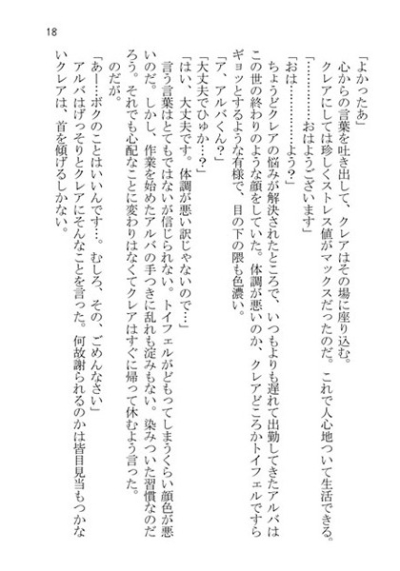 18
「よかったあ」
心からの言葉を吐き出して、クレアはその場に座り込む。
クレアにしては珍しくストレス値がマックスだったのだ。これで人心地ついて生活できる。
「…………おはようございます」
「おは……………よう?」
ちょうどクレアの悩みが解決されたところで、いつもよりも遅れて出勤してきたアルバは
この世の終わりのような顔をしていた。体調が悪いのか、クレアどころかトイフェルですら
ギョッとするような有様で、目の下の隈も色濃い。
「ア、アルバくん?」
「大丈夫でひゅか…?」
「はい、大丈夫です。体調が悪い訳じゃないので…」
言う言葉はとてもではないが信じられない。トイフェルがどもってしまうくらい顔色が悪
いのだ。しかし、作業を始めたアルバの手つきに乱れも淀みもない。染みついた習慣なのだ
ろう。それでも心配なことに変わりはなくてクレアはすぐに帰って休むよう言った。
のだが。
「あ―…ボクのことはいいんです…。むしろ、その、ごめんなさい」
アルバはげっそりとクレアにそんなことを言った。何故謝られるのかは皆目見当もつかな
いクレアは、首を傾げるしかない。